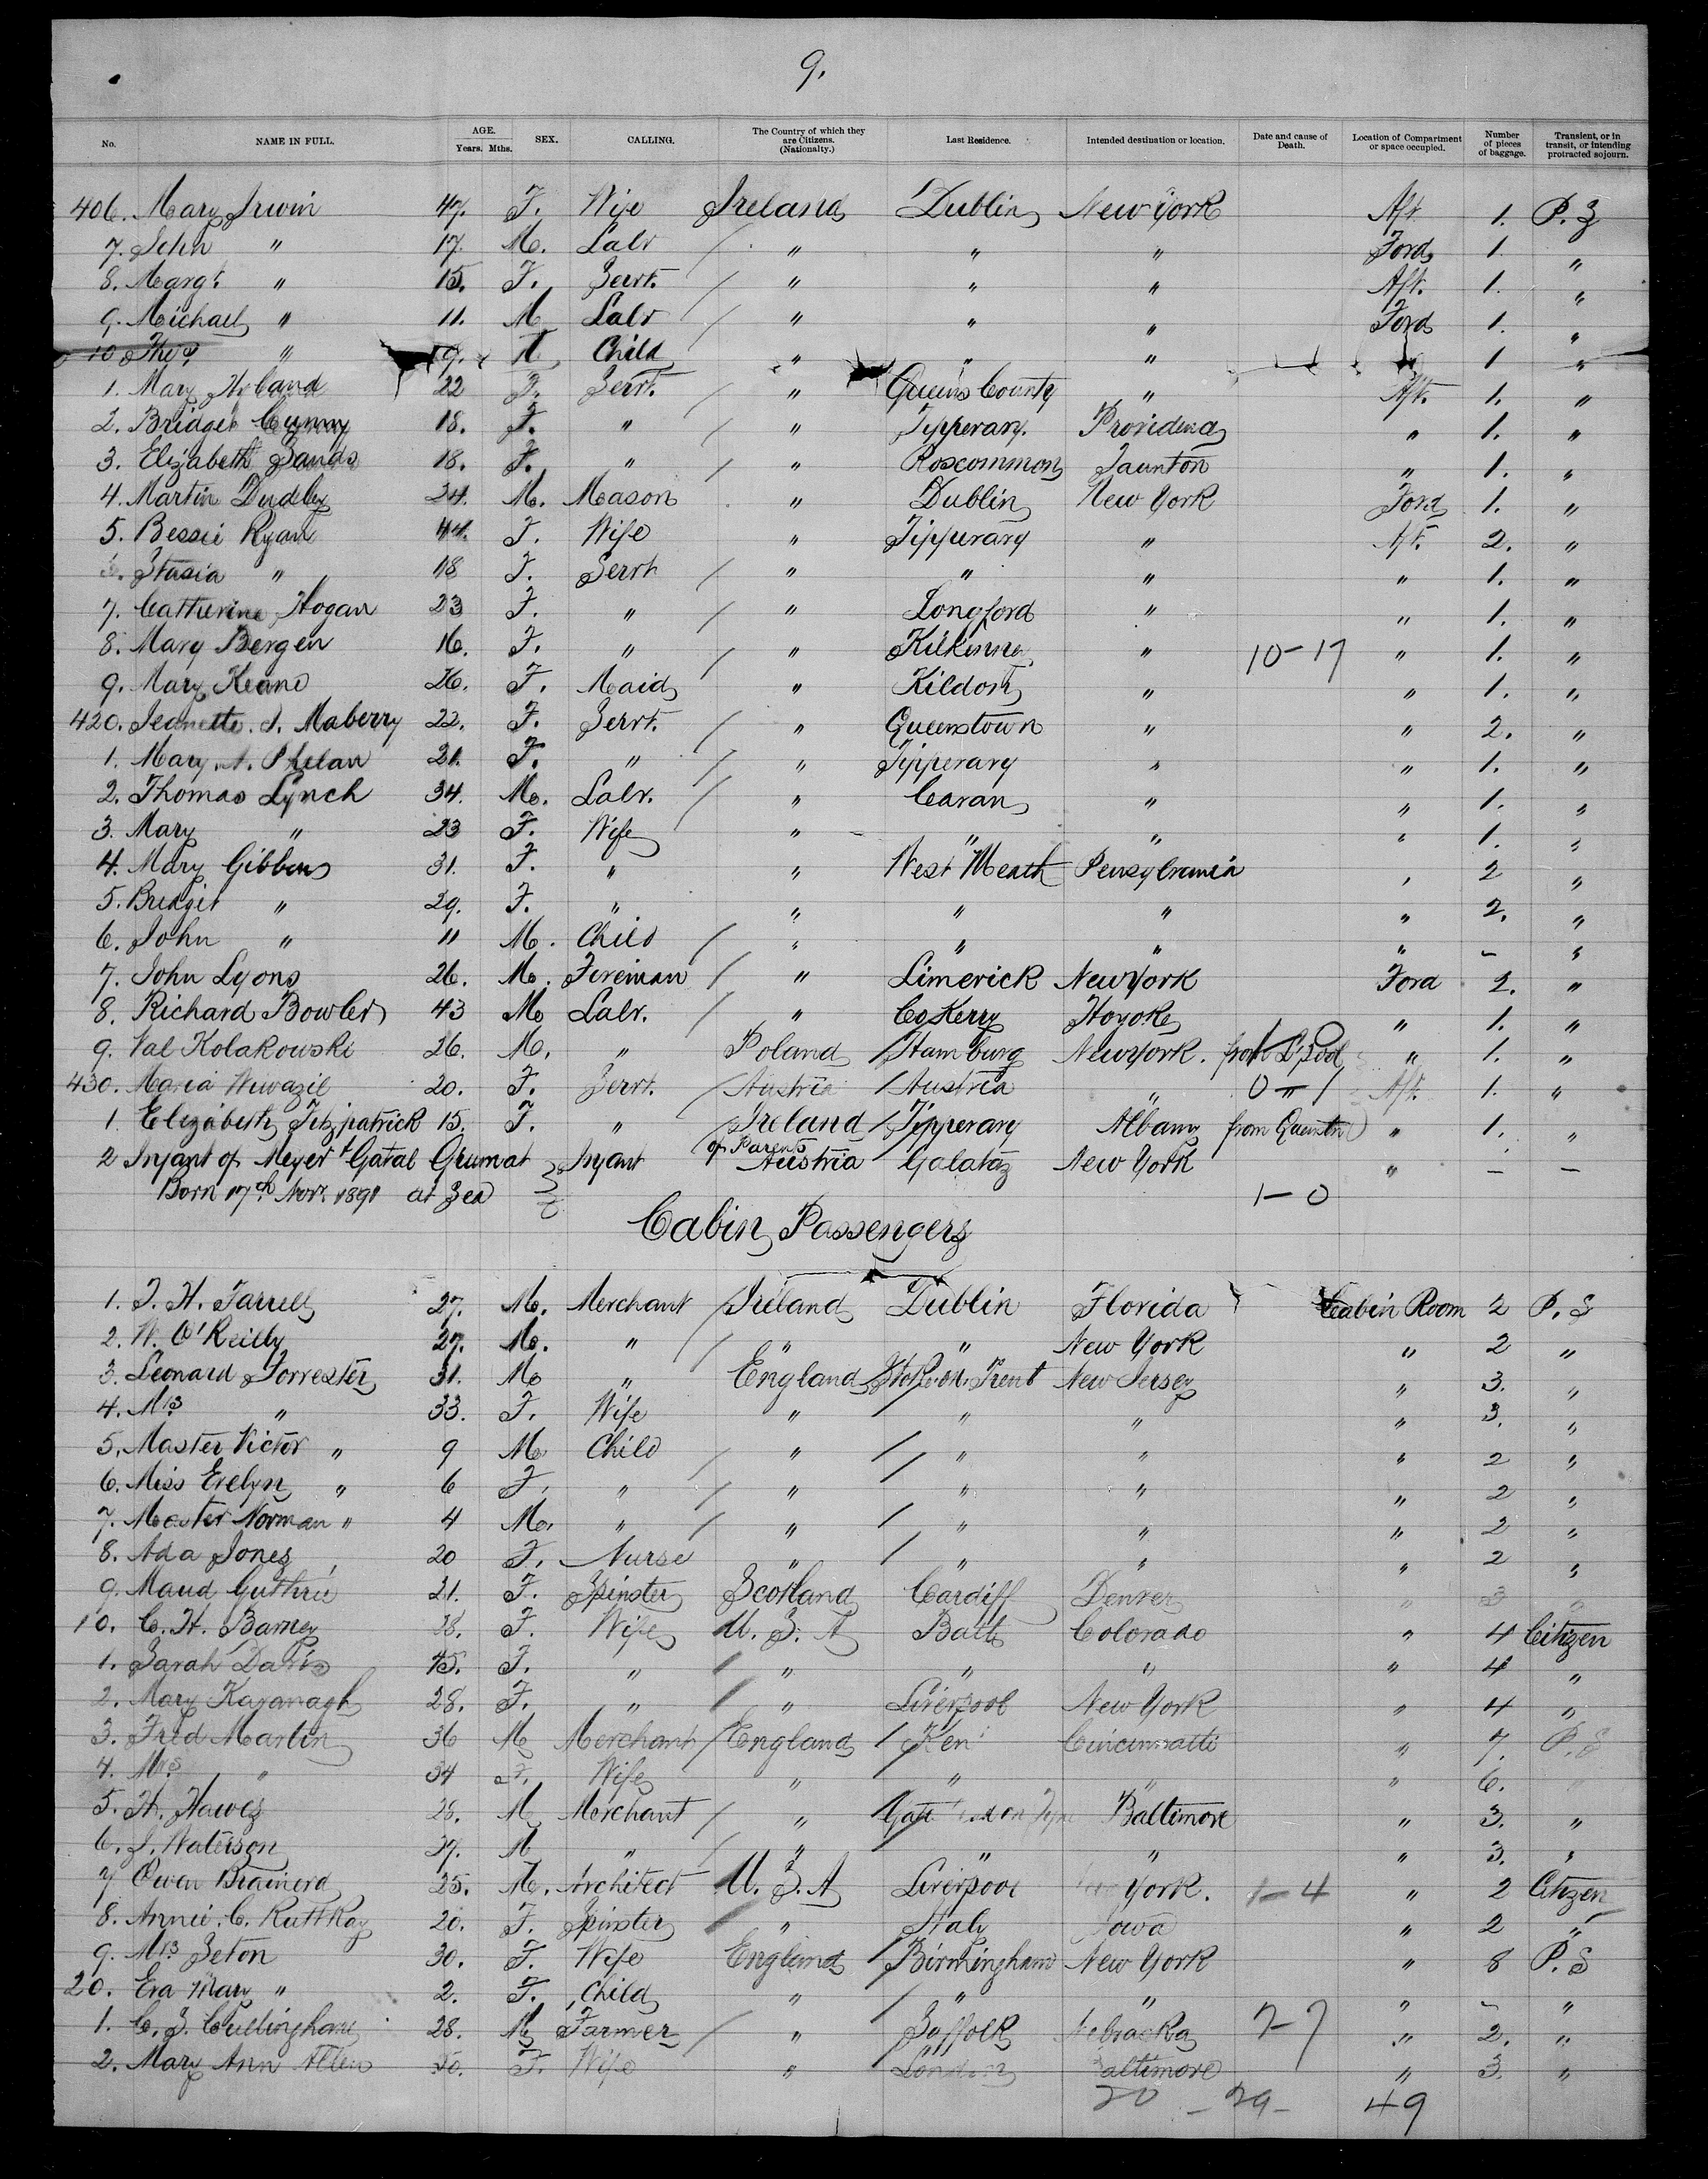 9.
No. NAME IN FULL. AGE. Years. Mths. SEX. CALLING. The Country of which they are Citizens. (Nationalty.) Last Residence. Intended destination or location. Date and cause of Death. Location of Compartment or space occupied. Number of pieces of baggage. Transient, or in transit, or intending protracted sojourn.
406. Mary Irwin 47. F. Wife Ireland Dublin New York Aft 1. P. S
7. John " 17. M. Labr " " " Ford 1. "
8. Margt. " 15. F. Servt. " " " Aft. 1. "
9. Michael " 11. M Labr " " " Ford 1. "
10 Thos " 9. Child " " " 1 "
1. Mary Hyland 22 F. Servt. " Queens County " Aft. 1. "
2. Bridget 18. F. " " Tipperary. Providence " 1. "
3. Elizabeth Sands 18. F. " " Roscommon Taunton " 1. "
4. Martin Dudley 24. M. Mason " Dublin New York Ford 1. "
5. Bessie Ryan 44. F. Wife " Tipperary " Aft. 2. "
6. Stasia " 18 F. Servt " " " " 1. "
7. Catherine Hogan 23 F. " " Longford " " 1. "
8. Mary Bergen 16. F. " " Kilkenny " 10-17 " 1. "
9. Mary Keane 26. F. Maid " " " 1. "
420. Jeanette. I. Maberry 22. F. Servt. " Queenstown " " 2. "
1. Mary. A. Phelan 21. F. " " Tipperary " " 1. "
2. Thomas Lynch 34. M. Labr. " Cavan " " 1. "
3. Mary " 23 F. Wife " " " " 1. "
4. Mary Gibbons 31. F. " " West Meath Pensylvania " 2 "
5. Bridget " 29. F. " " " " " 2. "
6. John " 11 M. Child " " " " - "
7. John Lyons 26. M. Fireman " Limerick New York Ford 2. "
8. Richard Bowler 43 M Labr. " Co Kerry Hoyoke " 1. "
9. Val Kolakowski 26. M. " Poland Hamburg New York. from L'pool " 1. "
430. Maria 20. F. Servt. Austria Austria " 0-1 Aft. 1. "
1. Elizabeth Fitzpatrick 15. F. " Ireland Tipperary Albany from " 1. "
2 Infant of Meyer & Gatal Grumat Infant of Parents Austria Galataz New York " - -
Born 17th Novr. 1891 at Sea 1-0
Cabin Passengers
1. J. H. Farrell 27. M. Merchant Ireland Dublin Florida Cabin Room 2 P. S
2. W. O'Reilly 27. M. " " " New York " 2 "
3. Leonard Forrester 31. M " England Stoke. on. Trent New Jersey " 3. "
4. Mrs " 33. F. Wife " " " " 3. "
5. Master Victor " 9 M Child " " " " 2 "
6. Miss Evelyn " 6 F. " " " " " 2 "
7. Master Norman " 4 M. " " " " " 2 "
8. Ada Jones 20 F. Nurse " " " " 2 "
9. Maud Guthrie 21. F. Spinster Scotland Cardiff Denver " 3 "
10. C. H. Barney 28. F. Wife U. S. A Bath Colorado " 4 Citizen
1. Sarah Davis 45. F. " " " " " 4 "
2. Mary Kavanagh 28. F. " " Liverpool New York " 4 "
3. Fred Martin 36 M Merchant England Kent Cincinnatti " 7. P. S
4. Mrs " 34 F. Wife " " " " 6. "
5. H. Hawes 28. M Merchant " on Tyne Baltimore " 3. "
6. J. Waterson 37. M " " " " " 3. "
7 Owen Brainerd 25. M. Architect U. S. A Liverpool New York. 1-4 " 2 Citizen
8. Annie. C. Ruttkay 20. F. Spinster " Italy Iowa " 2 "
9. Mrs Seton 30. F. Wife England Birmingham New York " 8 P. S
20. Eva Mary " 2. F. Child " " " " - "
1. C. S. Cullingham 28. M Farmer " Suffolk Nebraska 7-7 " 2. "
2. Mary Ann Allen 50. F. Wife " London Baltimore " 3. "
20 - 29 - 49